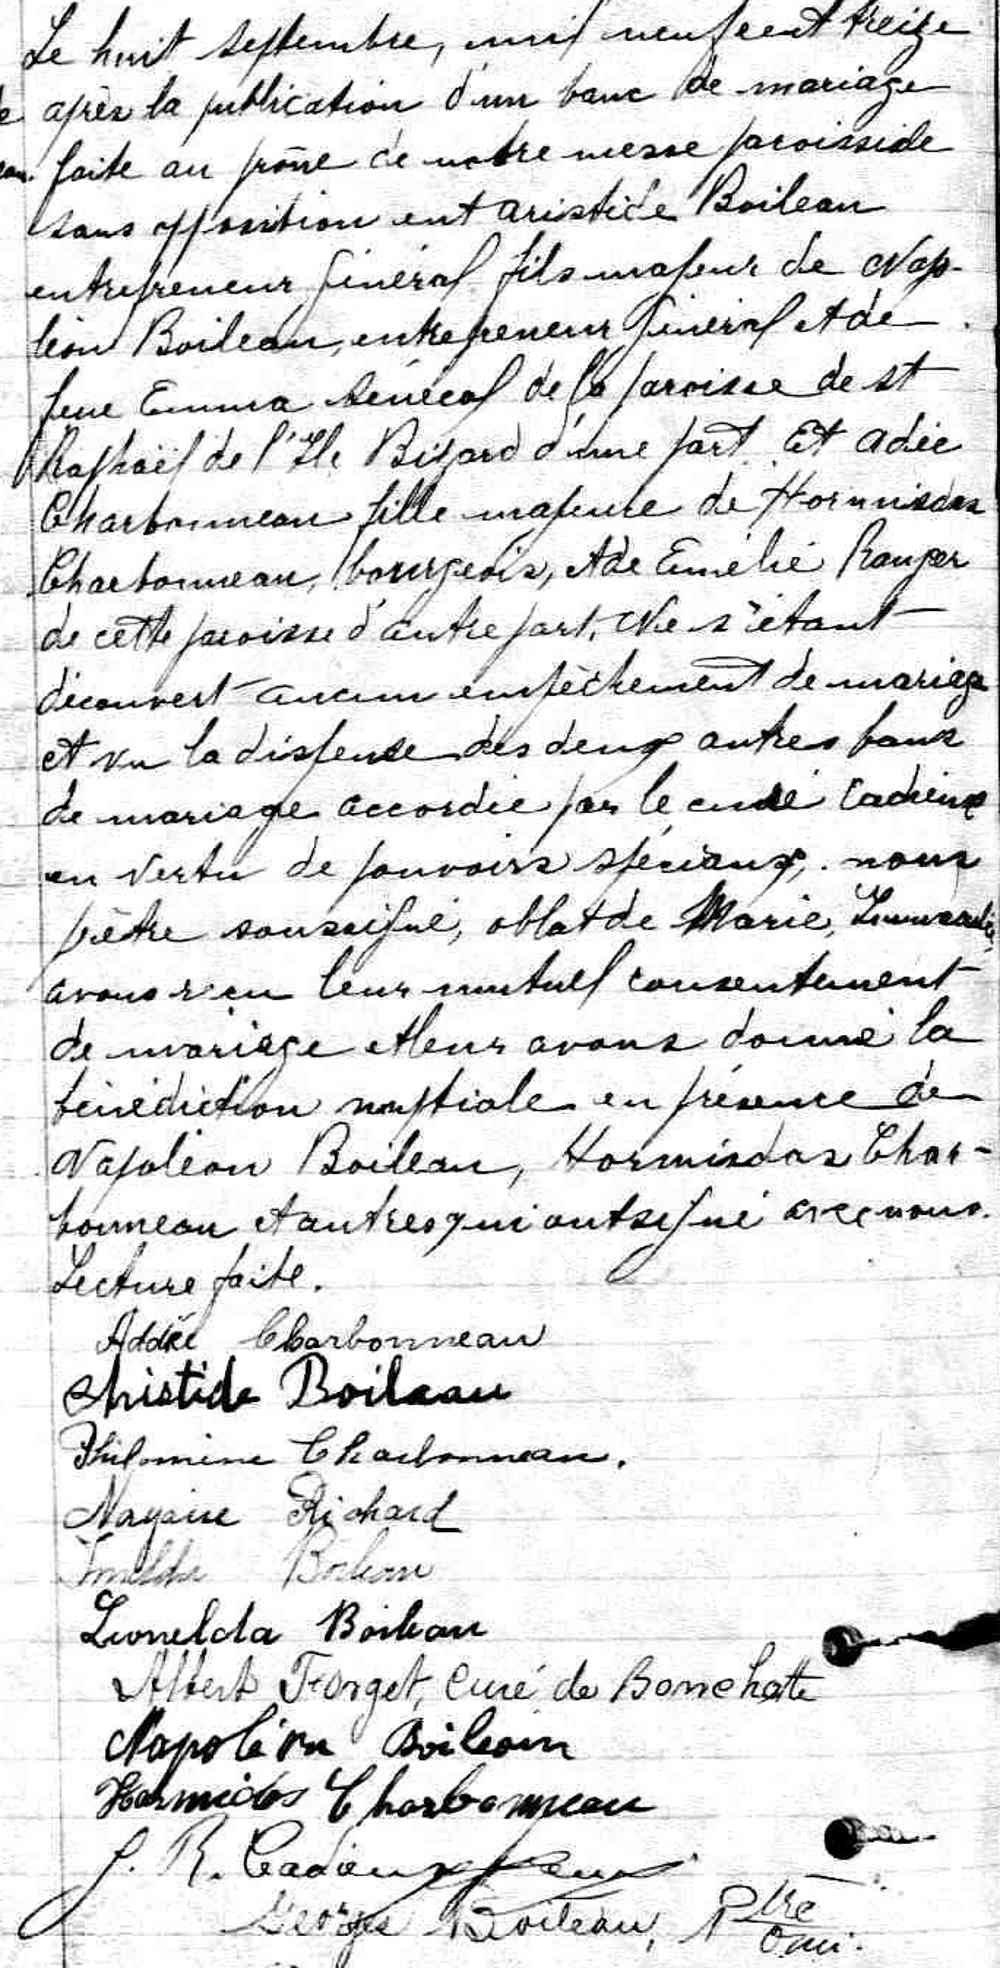 Le huit septembre, mil neuf cent treize
après la publication d'un banc de mariage
faite au prône de notre messe paroissiale
sans opposition ent Aristide Boileau
entrepreneur général fils majeur de Napo-
léon Boileau, entrepreneur général et de
feue Emma Sénécal de la paroisse de St
Raphaël de l'Ile Bizard d'une part. Et Adée
Charbonneau fille majeure de Hormisdas
Charbonneau, bourgeois, et de Emélie Ranger
de cette paroisse d'autre part, Ne s'étant
découvert aucun empêchement de mariage
et vu la dispense des deux autres bans
de mariage accordée par le curé Cadieux
en vertu de pouvoirs spéciaux, nous
prêtre soussigné, oblat de Marie Immaculée,
avons reçu leur mutuel consentement
de mariage et leur avons donné la
bénédiction nuptiale en présence de
Napoléon Boileau, Hormisdas Char-
bonneau et autres qui ont signé avec nous.
Lecture faite.
Addée Charbonneau
Aristide Boileau
Philomène Charbonneau.
Nazaire Richard
Imelda Boileau
Lionelda Boileau
Albert Forget, curé de
Napoléon Boileau
Hormidas Charbonneau
J. R. Cadieux
Georges Boileau, Ptre
o.m.i.